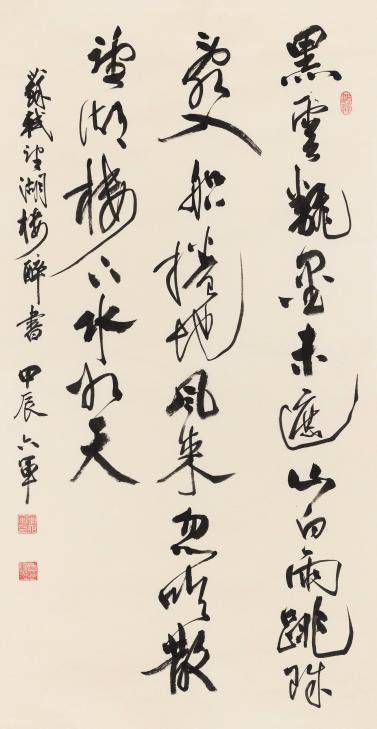 黑雲翻墨未遮山白雨跳珠
亂入船捲地風來忽吹散
望湖樓下水如天
蘇軾望湖樓醉書 甲辰 六軍